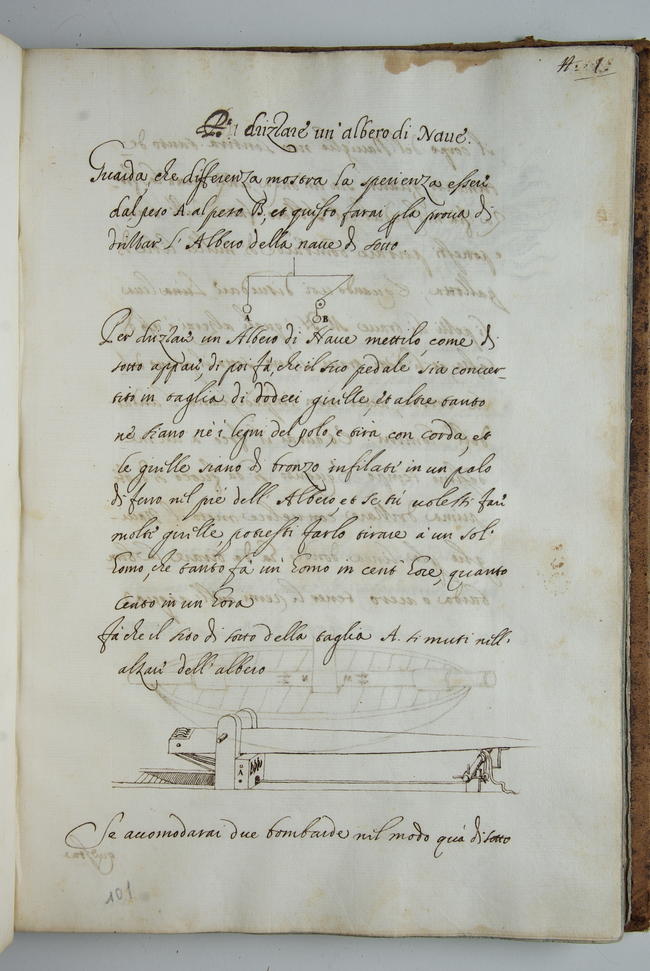 Per drizzare un' albero di Naue.
Guarda, che differenza mostra la sperienza esser
dal peso A. al peso B, et questo farai p la proua di
drizzar l'Albero della naue di sotto
A
B
Per drizzar un Albero di Naue mettilo, come di
sotto appar, di poi fà, che il suo pedale sia conuer-
tito in taglia di dodeci girelle, et altre tante
nè siano nè i legni del polo e tira con corda, et
le girelle siano di bronzo infilati in un palo
di ferro nel piè dell' Albero, et se tu uolessi far
molte girelle, potresti farlo tirare à un sol'
homo, che tanto fà un homo in cent' hore, quanto
cento in un hora
fà che il sito di sotto della taglia A. si muti nell'
alzar dell' albero
M
A
Se accomodarai due bombarde nel modo quà di sotto
101